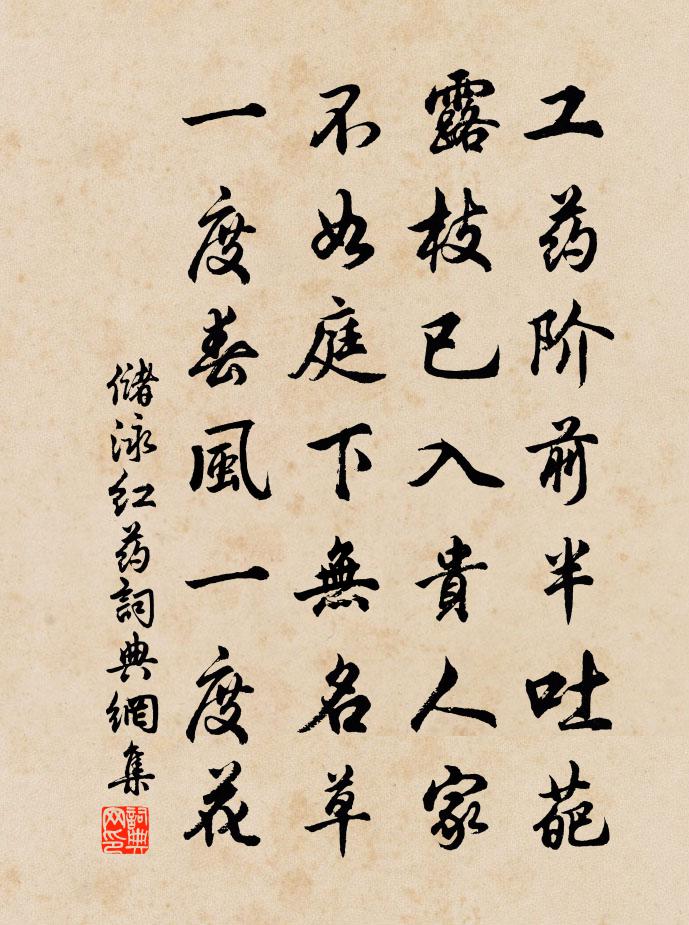 工药阶前半吐葩
露枝已入貴人家
不如庭下無名草
一度春風一度花
儲泳红药詞典網集
詞典網印